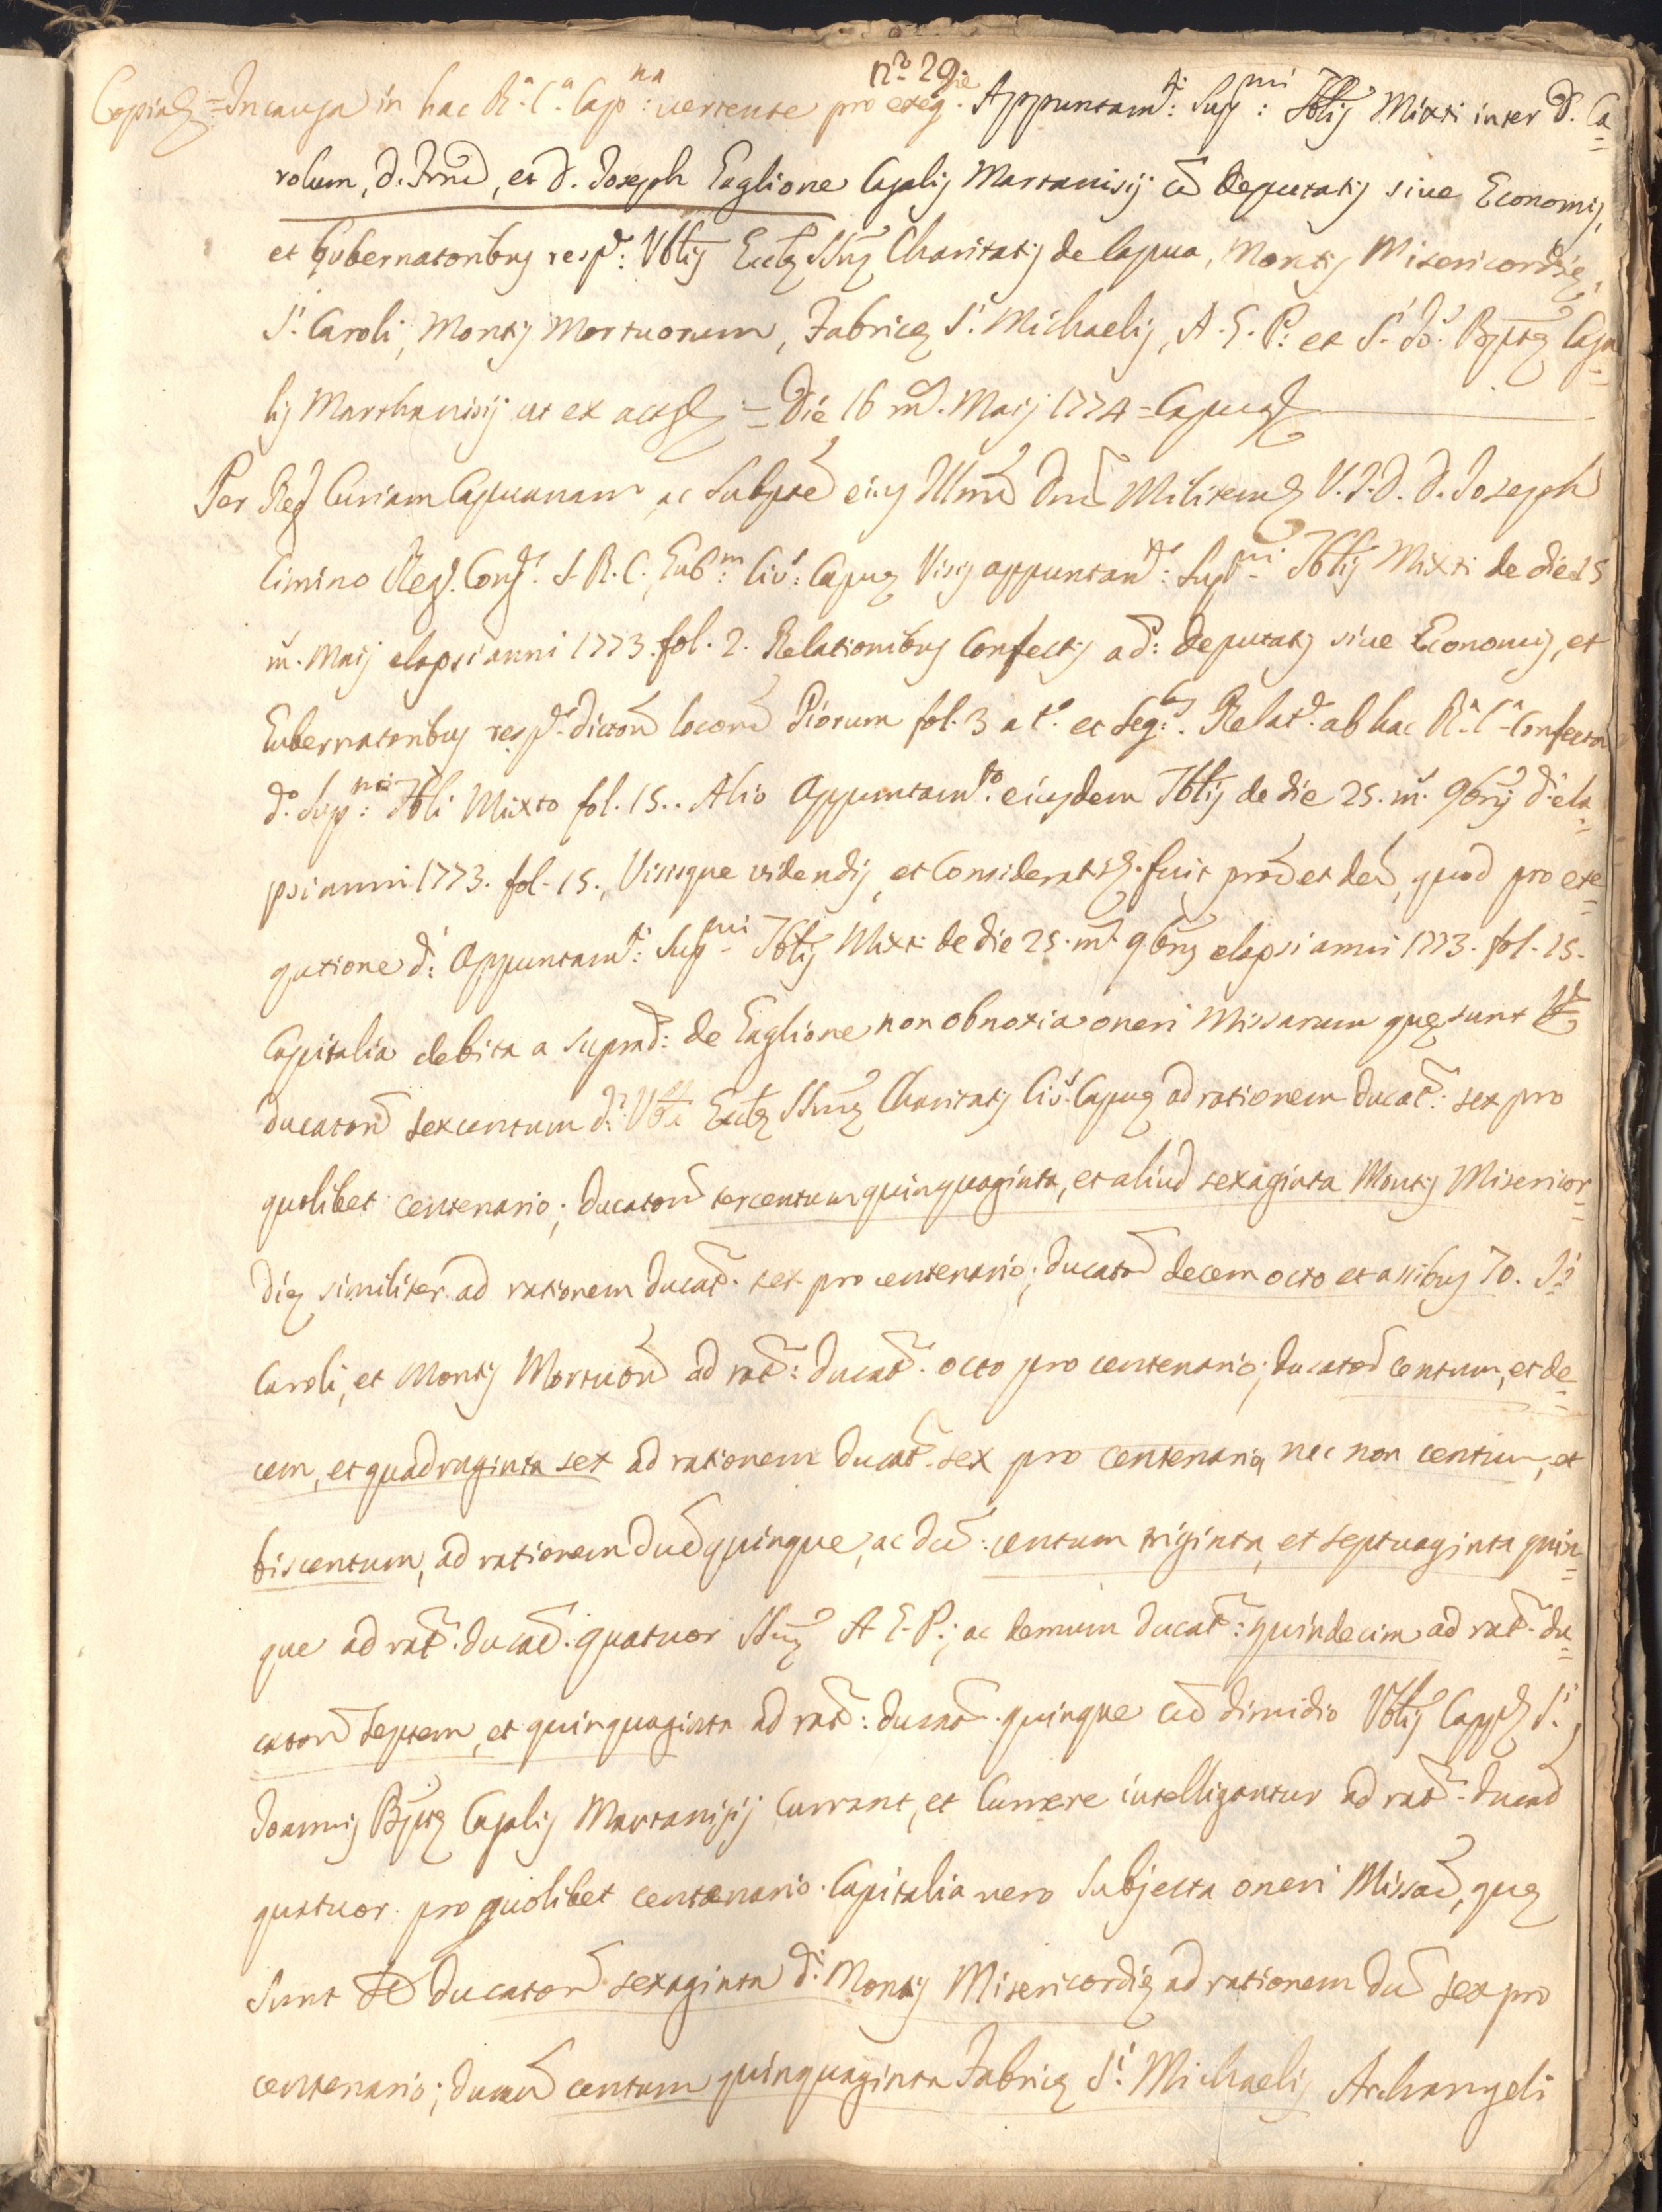 n.º 29
Copia = In causa in hac R.ª C.ª Cap.na vertente pro exeq.ne Appuntam.ti Sup.mi Tblis Mixti inter D. Ca=
rolum, D. , et D. Joseph Taglione Casalis Martanisij cū Deputatis sive Economis,
et Gubernatoribus resp.e Vblis Eccllę SSmę Charitatis de Capua, Montis Misericordię,
S.i Caroli, Montis Mortuorum, Fabricę S.i Michaelis, A. G. P. et S. Jo. Bpttę Casa=
lis Marthanisij ut ex actis = Die 16 m. Maij 1774 = Capuę
Per Reg. Curiam Capuanam ac Subpre eius Illmū Dnū Militem U.J.D. D. Joseph
Cimino Reg. Cons. S. R. C. Gub.m Civ.s Capuę Viso appuntam.to Sup.mi Tblis Mixti de die 25
m. Maij elapsi anni 1773. fol. 2. Relationibus Confectis a d. Deputatis sive Economis, et
Gubernatoribus resp.e dictorū locorū Piorum fol. 3 a t.º et seq.bus. Relat.e ab hac R.ª C.ª Confecta
d.º Sup.mo Tbli Mixto fol. 15.. Alio Appuntam.to eiusdem Tblis de die 25. m. 9bris d. ela=
psi anni 1773. fol. 15., Visisque videndis, et Consideratis. fuit provū et decū, quod pro exe=
qutione d.i Appuntam.ti Sup.mi Tblis Mixti de die 25. m. 9bris elapsi anni 1773. fol. 15.
Capitalia debita a suprad. de Taglione non obnoxia oneri Missarum quę sunt
Ducatorū sexcentum d. Vbli Eccllę SSmę Charitatis Civ.s Capuę ad rationem Ducat. sex pro
quolibet centenario; Ducatorū tercentum quinquaginta, et aliud sexaginta Montis Misericor=
dię similiter ad rationem Ducat. sex pro centenario; ducatorū decem octo et assibus 70. S.i
Caroli, et Montis Mortuorū ad rat. ducat. octo pro centenario; ducatorū centum, et de=
cem, et quadraginta sex ad rationem Ducat. sex pro centenario, nec non centum, et
biscentum, ad rationem Duc quinque, ac duc. centum triginta, et septuaginta quin=
que ad rat. ducat. quatuor SSmę A. G. P.; ac demum ducat. quindecim ad rat. du=
catorū septem, et quinquaginta ad rat. ducat. quinque cū dimidio Vblis Cappę S.i
Joannis Bpttę Casalis Martanisij Currant, et Currere intelligantur ad rat. ducat
quatuor pro quolibet centenario. Capitalia vero subjecta oneri Missarū, quę
sunt Ducatorū sexaginta d.i Montis Misericordię ad rationem Duc sex pro
centenario; ducatū centum quinquaginta Fabricę S.i Michaelis Archangeli